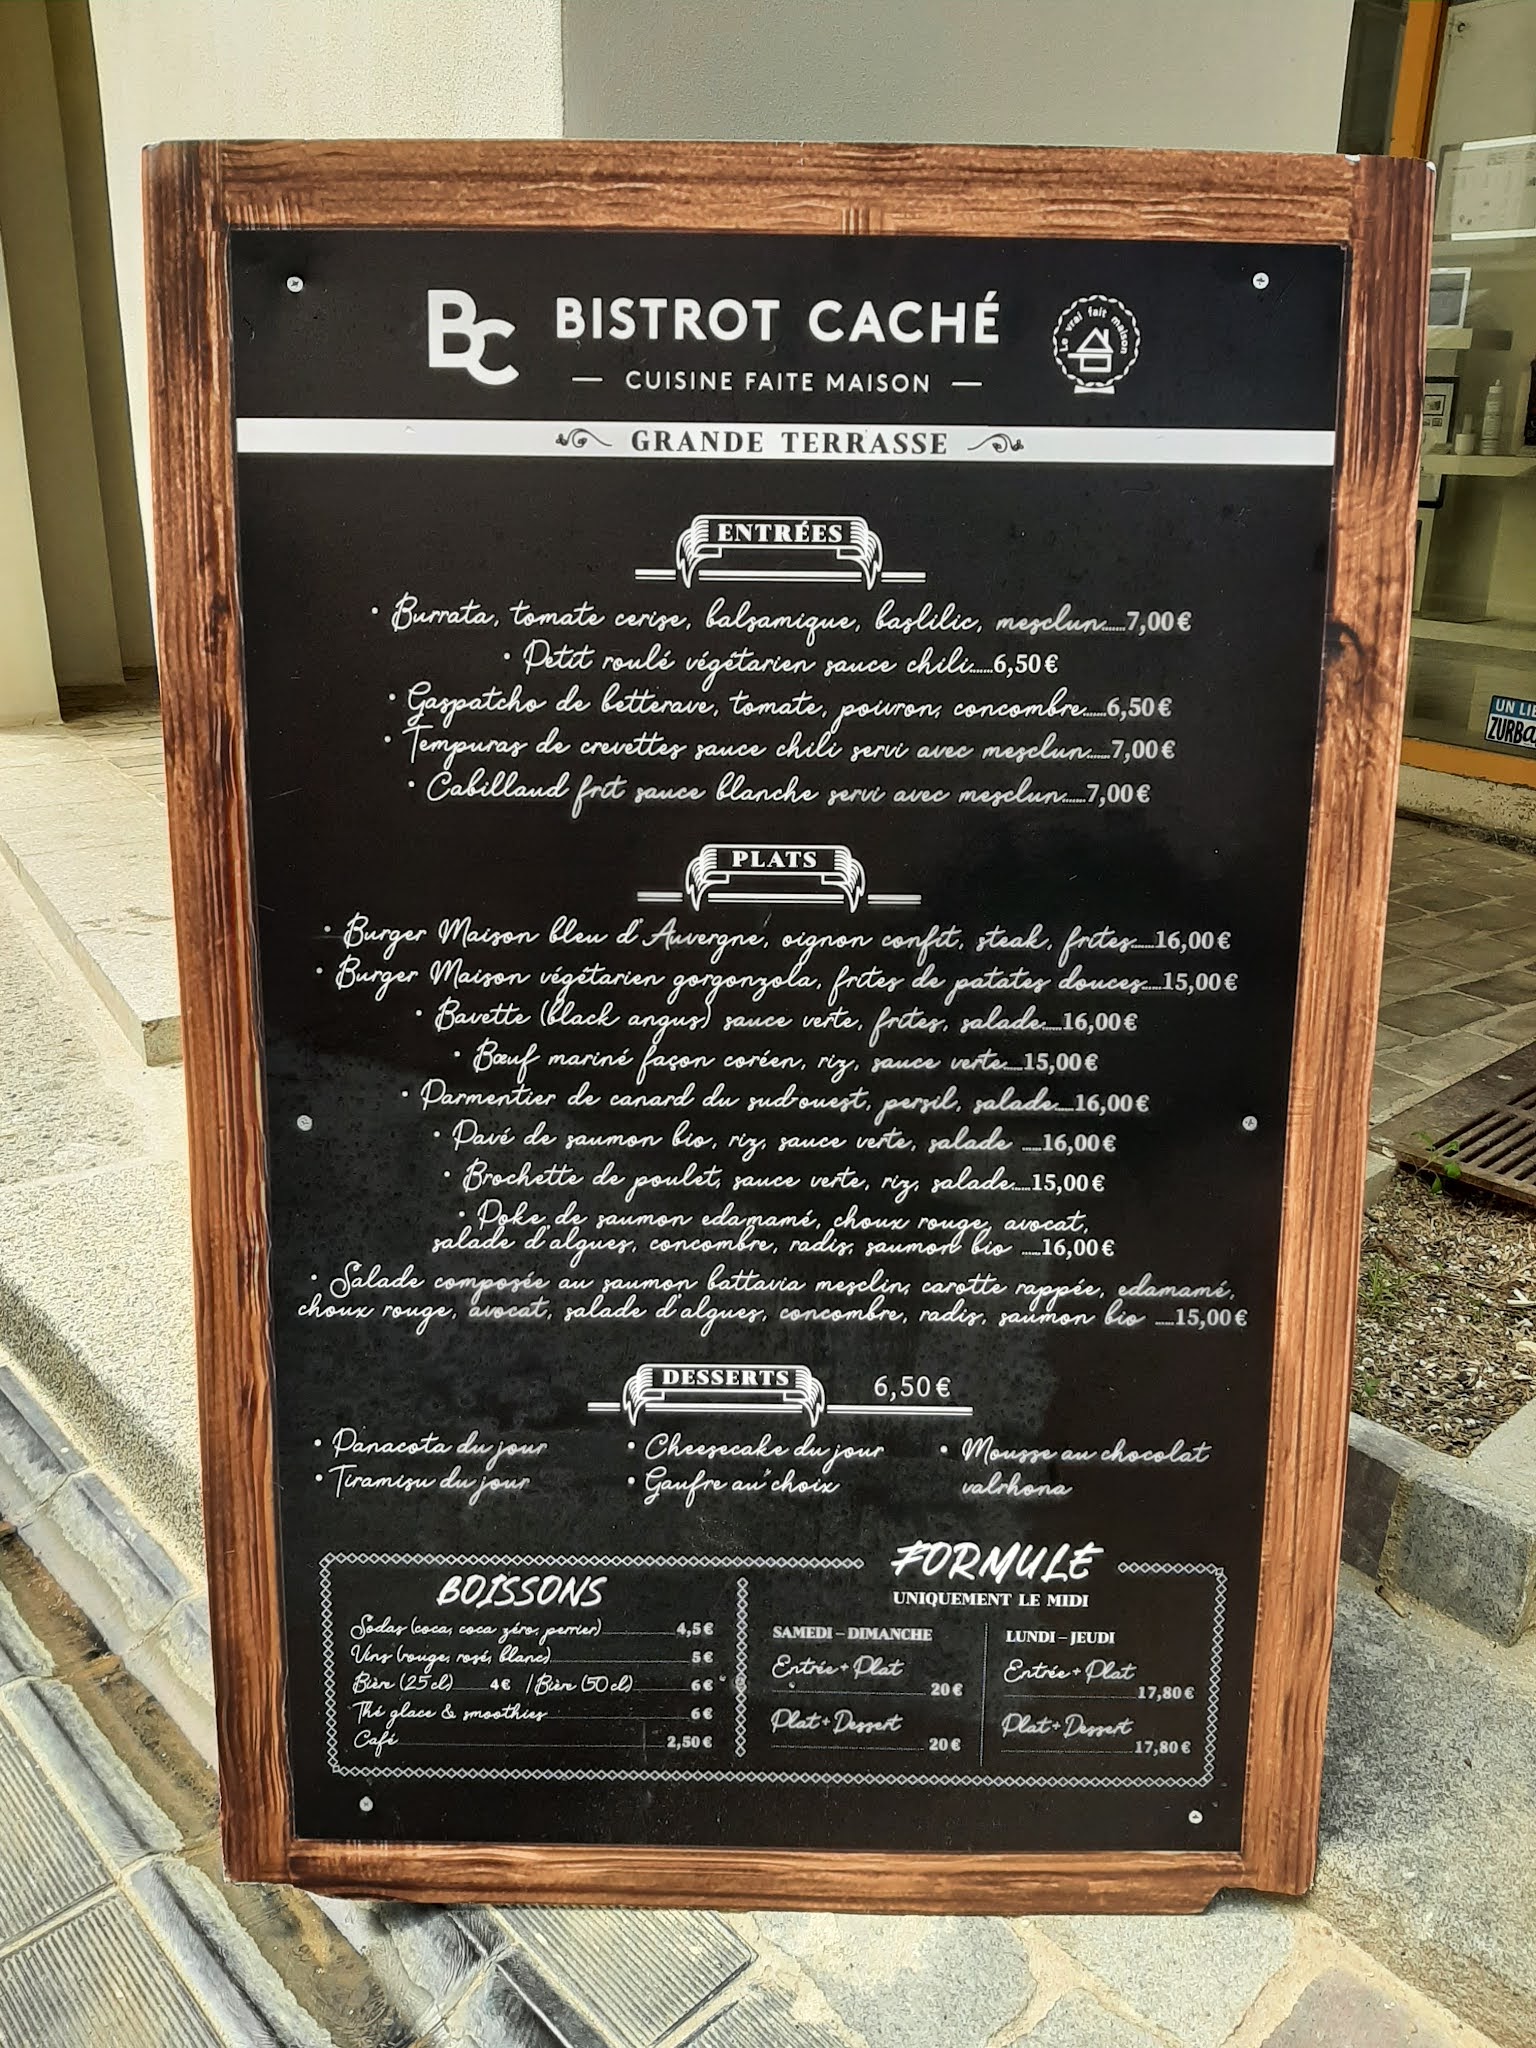 BC
BISTROT CACHÉ
CUISINE FAITE MAISON
Le vrai fait maison
GRANDE TERRASSE
ENTRÉES
• Burrata, tomate cerise, balsamique, baslilic, mesclun......7,00€
• Petit roulé végétarien sauce chili......6,50€
• Gaspatcho de betterave, tomate, poivron, concombre......6,50€
• Tempuras de crevettes sauce chili servi avec mesclun......7,00€
• Cabillaud frit sauce blanche servi avec mesclun......7,00€
PLATS
• Burger Maison bleu d'Auvergne, oignon confit, steak, frites......16,00€
• Burger Maison végétarien gorgonzola, frites de patates douces.....15,00€
• Bavette (black angus) sauce verte, frites, salade.....16,00€
• Bœuf mariné façon coréen, riz, sauce verte.....15,00€
• Parmentier de canard du sud-ouest, persil, salade.....16,00€
• Pavé de saumon bio, riz, sauce verte, salade .....16,00€
• Brochette de poulet, sauce verte, riz, salade.....15,00€
• Poke de saumon edamamé, choux rouge, avocat,
salade d'algues, concombre, radis, saumon bio .....16,00€
• Salade composée au saumon battavia mesclin, carotte rappée, edamamé,
choux rouge, avocat, salade d'algues, concombre, radis, saumon bio .....15,00€
DESSERTS 6,50€
• Panacota du jour • Cheesecake du jour • Mousse au chocolat
• Tiramisu du jour • Gaufre au choix valrhona
BOISSONS
Sodas (coca, coca zéro, perrier) 4,5€
Vins (rouge, rosé, blanc) 5€
Bière (25cl) 4€ / Bière (50cl) 6€
Thé glace & smoothies 6€
Café 2,50€
FORMULE
UNIQUEMENT LE MIDI
SAMEDI – DIMANCHE
Entrée + Plat
20€
Plat + Dessert
20€
LUNDI – JEUDI
Entrée + Plat
17,80€
Plat + Dessert
17,80€
UN LI
ZURBA